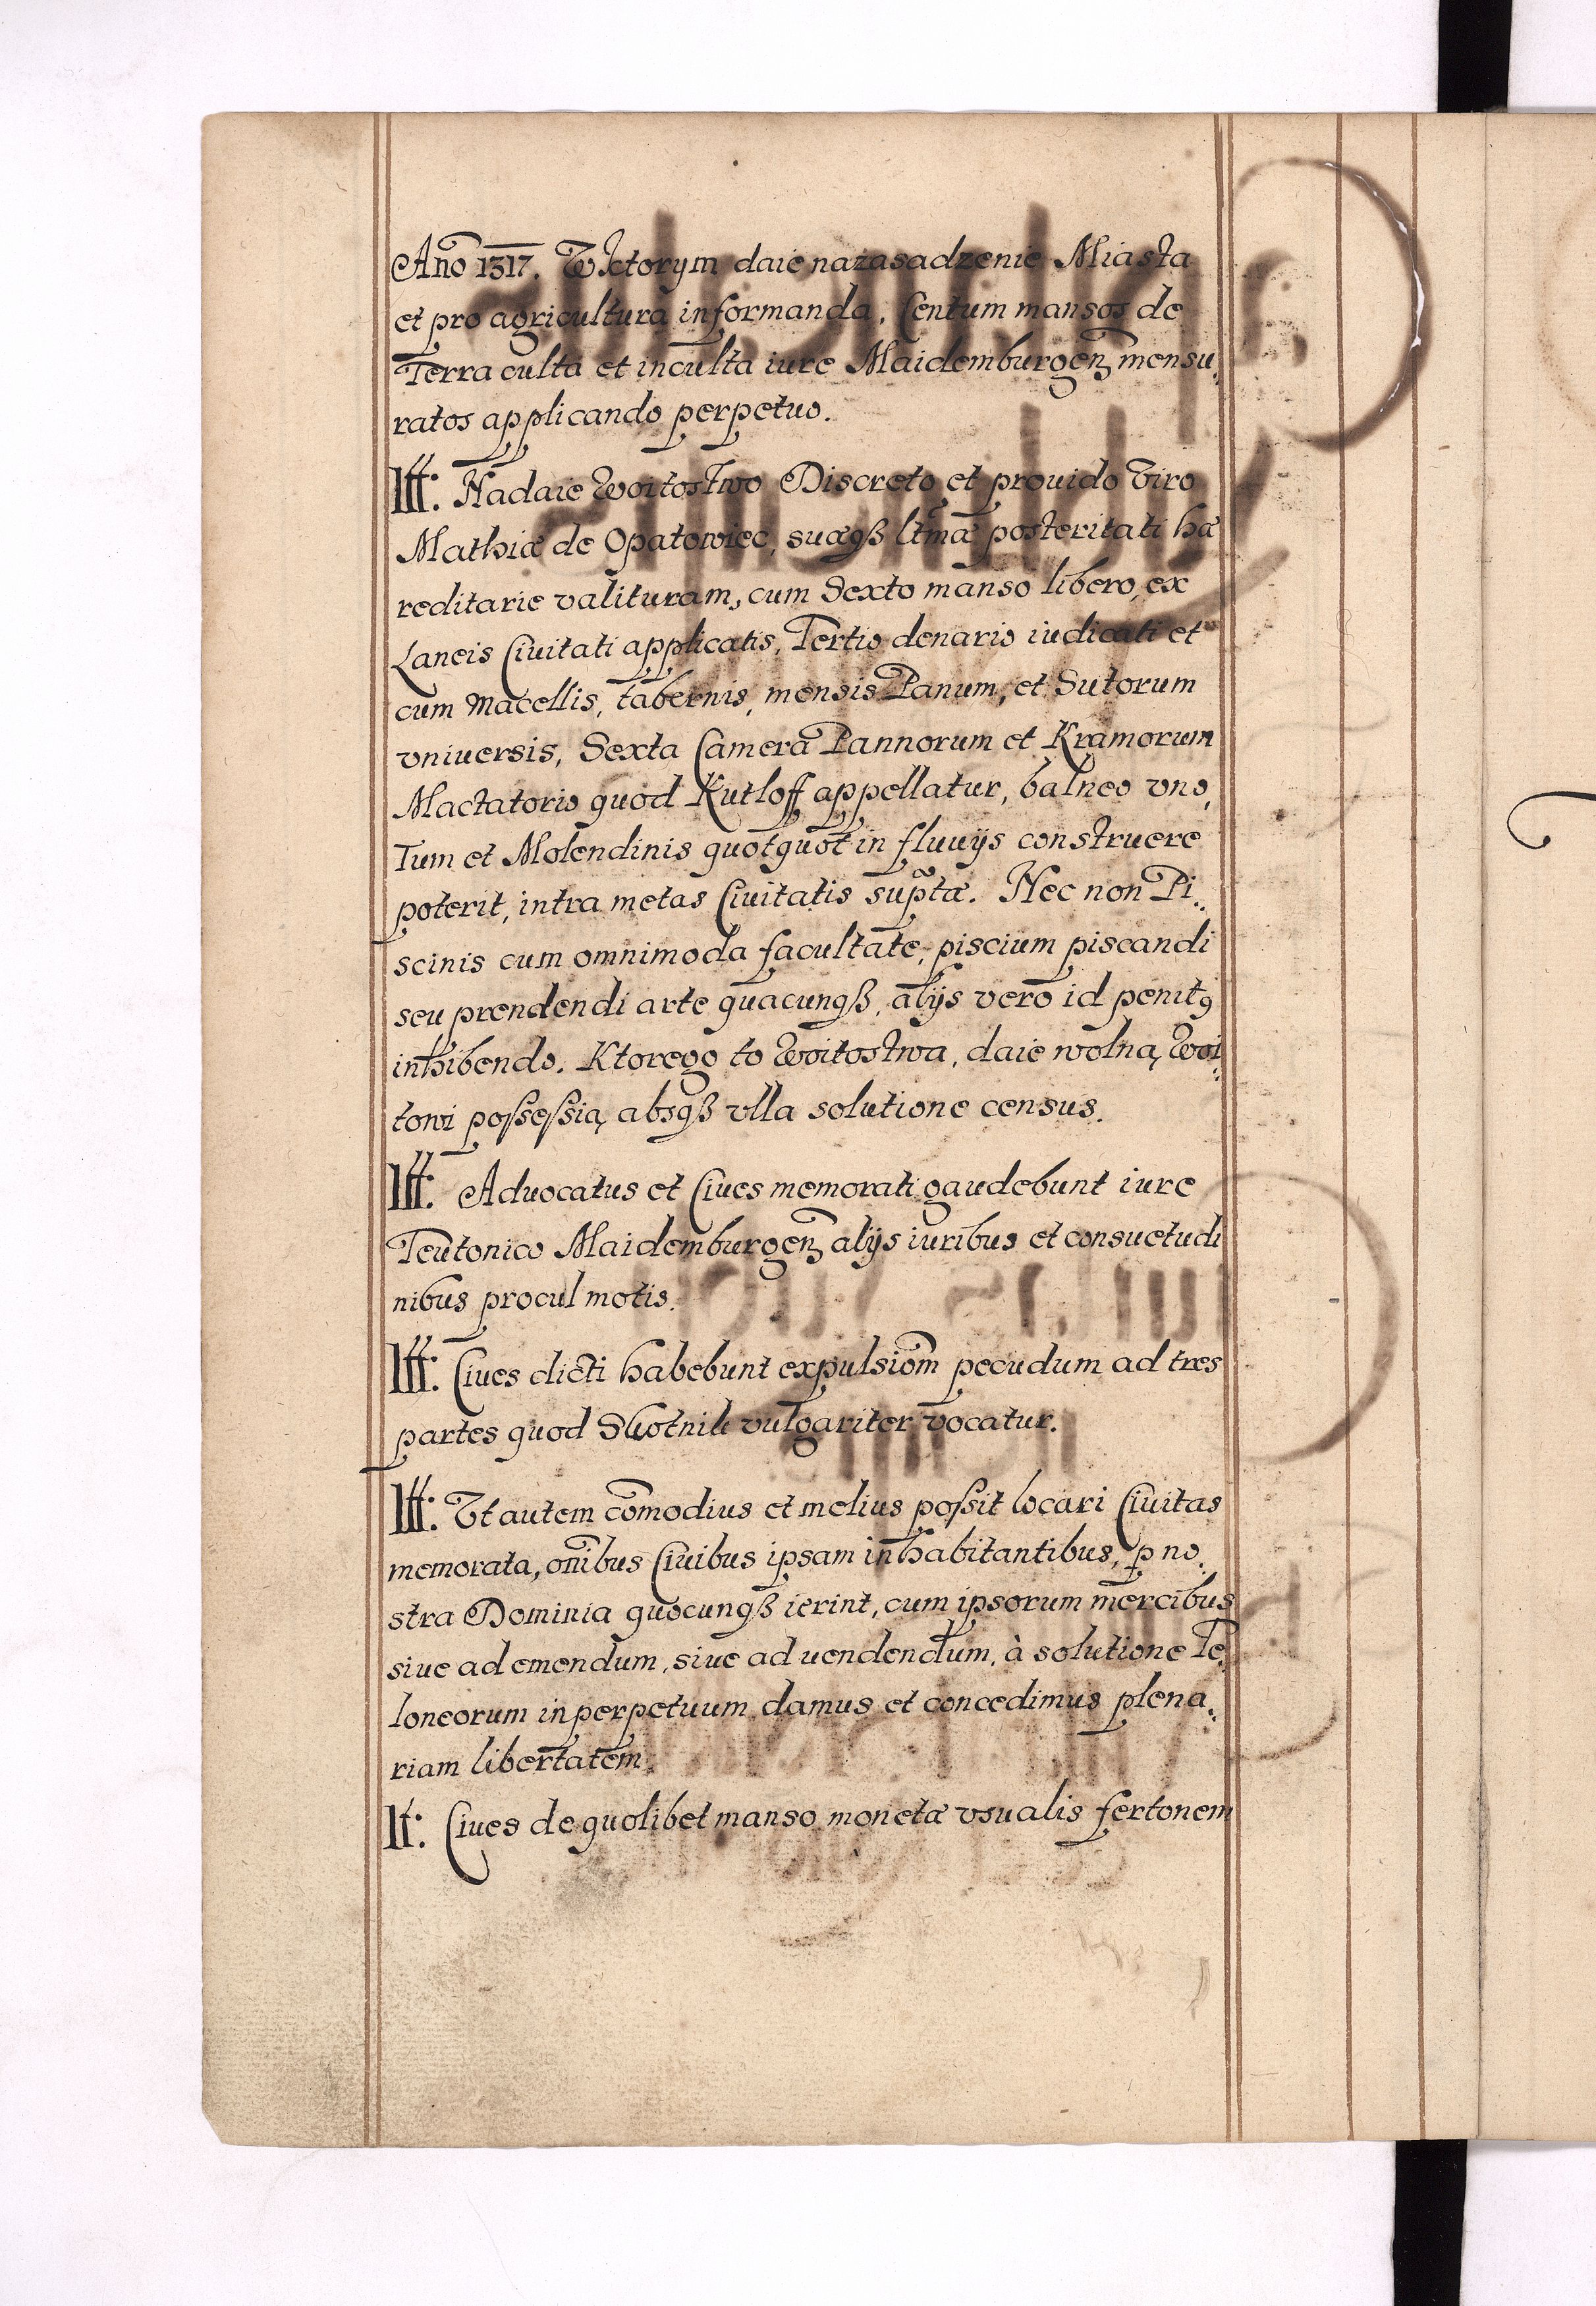 Año 1317. W ktorym daie na zasadzenie Miasta
et pro agricultura informanda, Centum mansos de
Terra culta et inculta iure Maidemburgenʒ mensu„
ratos applicando perpetuo.
Itt: Nadaie Woitostwo Discreto et prouido Viro
Mathiæ de Opatowiec, suæqꝫ ltmæ posteritati hæ
reditarie valituram, cum Sexto manso libero, ex
Laneis Ciuitati applicatis, Tertio denario iudicati et
cum Macellis, tabernis, mensis Panum, et Sutorum
vniuersis, Sexta Camera Pannorum et Kramorum
Mactatorio quod Kutloff appellatur, balneo vno,
Tum et Molendinis quotquot in fluuijs construere
poterit, intra metas Ciuitatis suptæ. Nec non Pi„
scinis cum omnimoda facultate, piscium piscandi
seu prendendi arte quacunqꝫ, alijs vero id penitꝰ
inhibendo. Ktorego to Woitostwa, daie wolną Woi„
towi poſseſsią absqꝫ vlla solutione census.
Itt: Advocatus et Ciues memorati gaudebunt iure
Teutonico Maidemburgenʒ alijs iuribus et consuetudi
nibus procul motis.
Itt: Ciues dicti habebunt expulsiom̄ pecudum ad tres
partes quod Skotnik vulgariter vocatur.
Itt: Vt autem com̄odius et melius poſsit locari Ciuitas
memorata, om̄ibus Ciuibus ipsam inhabitantibus, ꝑ no„
stra Dominia quocunqꝫ ierint, cum ipsorum mercibus
siue ad emendum, siue ad uendendum, à solutione Te„
loneorum in perpetuum damus et concedimus plena„
riam libertatem.
It: Ciues de quolibet manso monetæ vsualis fertonem